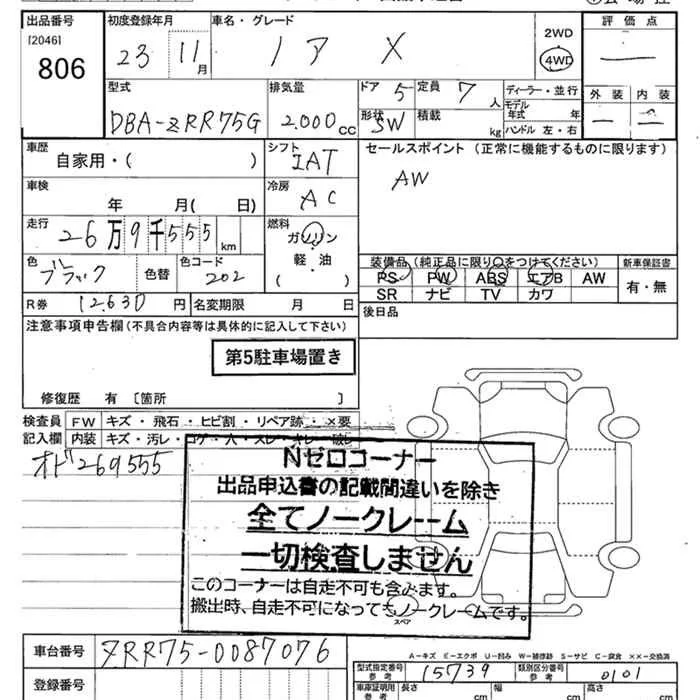 出品番号 初度登録年月 車名・グレード 2WD 評価点
[2046] 806 23 11月 ノア X 4WD
型式 排気量 ドア 5 定員 7人 ディーラー・並行 外装 内装
DBA-ZRR75G 2.000cc 形状 SW 積載 kg モデル年式 年 ハンドル 左・右
車歴 自家用・( ) シフト IAT セールスポイント (正常に機能するものに限ります)
車検 年 月( 日) 冷房 AC AW
走行 26万9千555km 燃料 ガソリン
軽・油 装備品(純正品に限り○をつけてください) 新車保証書
色 ブラック 色替 色コード 202 PS PW ABS エアB AW 有・無
R券 12.630円 名変期限 月 日 SR ナビ TV カワ
注意事項申告欄(不具合内容等は具体的に記入して下さい) 後日品
第5駐車場置き
修復歴 有 〔箇所 〕
検査員 FW キズ・飛石・ヒビ割・リペア跡・×要
記入欄 内装 キズ・汚レ・コゲ・穴・スレ・
オド269555
Nゼロコーナー
出品申込書の記載間違いを除き
全てノークレーム
一切検査しません
このコーナーは自走不可も含みます。
搬出時、自走不可になってもノークレームです。
スペア
車台番号 ZRR75-0087076 A-キズ E-エクボ U-凹み W-補修跡 S-サビ C-腐食 ××-交換済
登録番号 型式指定番号 参考 15739 類別区分番号 参考 0101
車庫証明用 参考 長さ cm 幅 cm 高さ cm